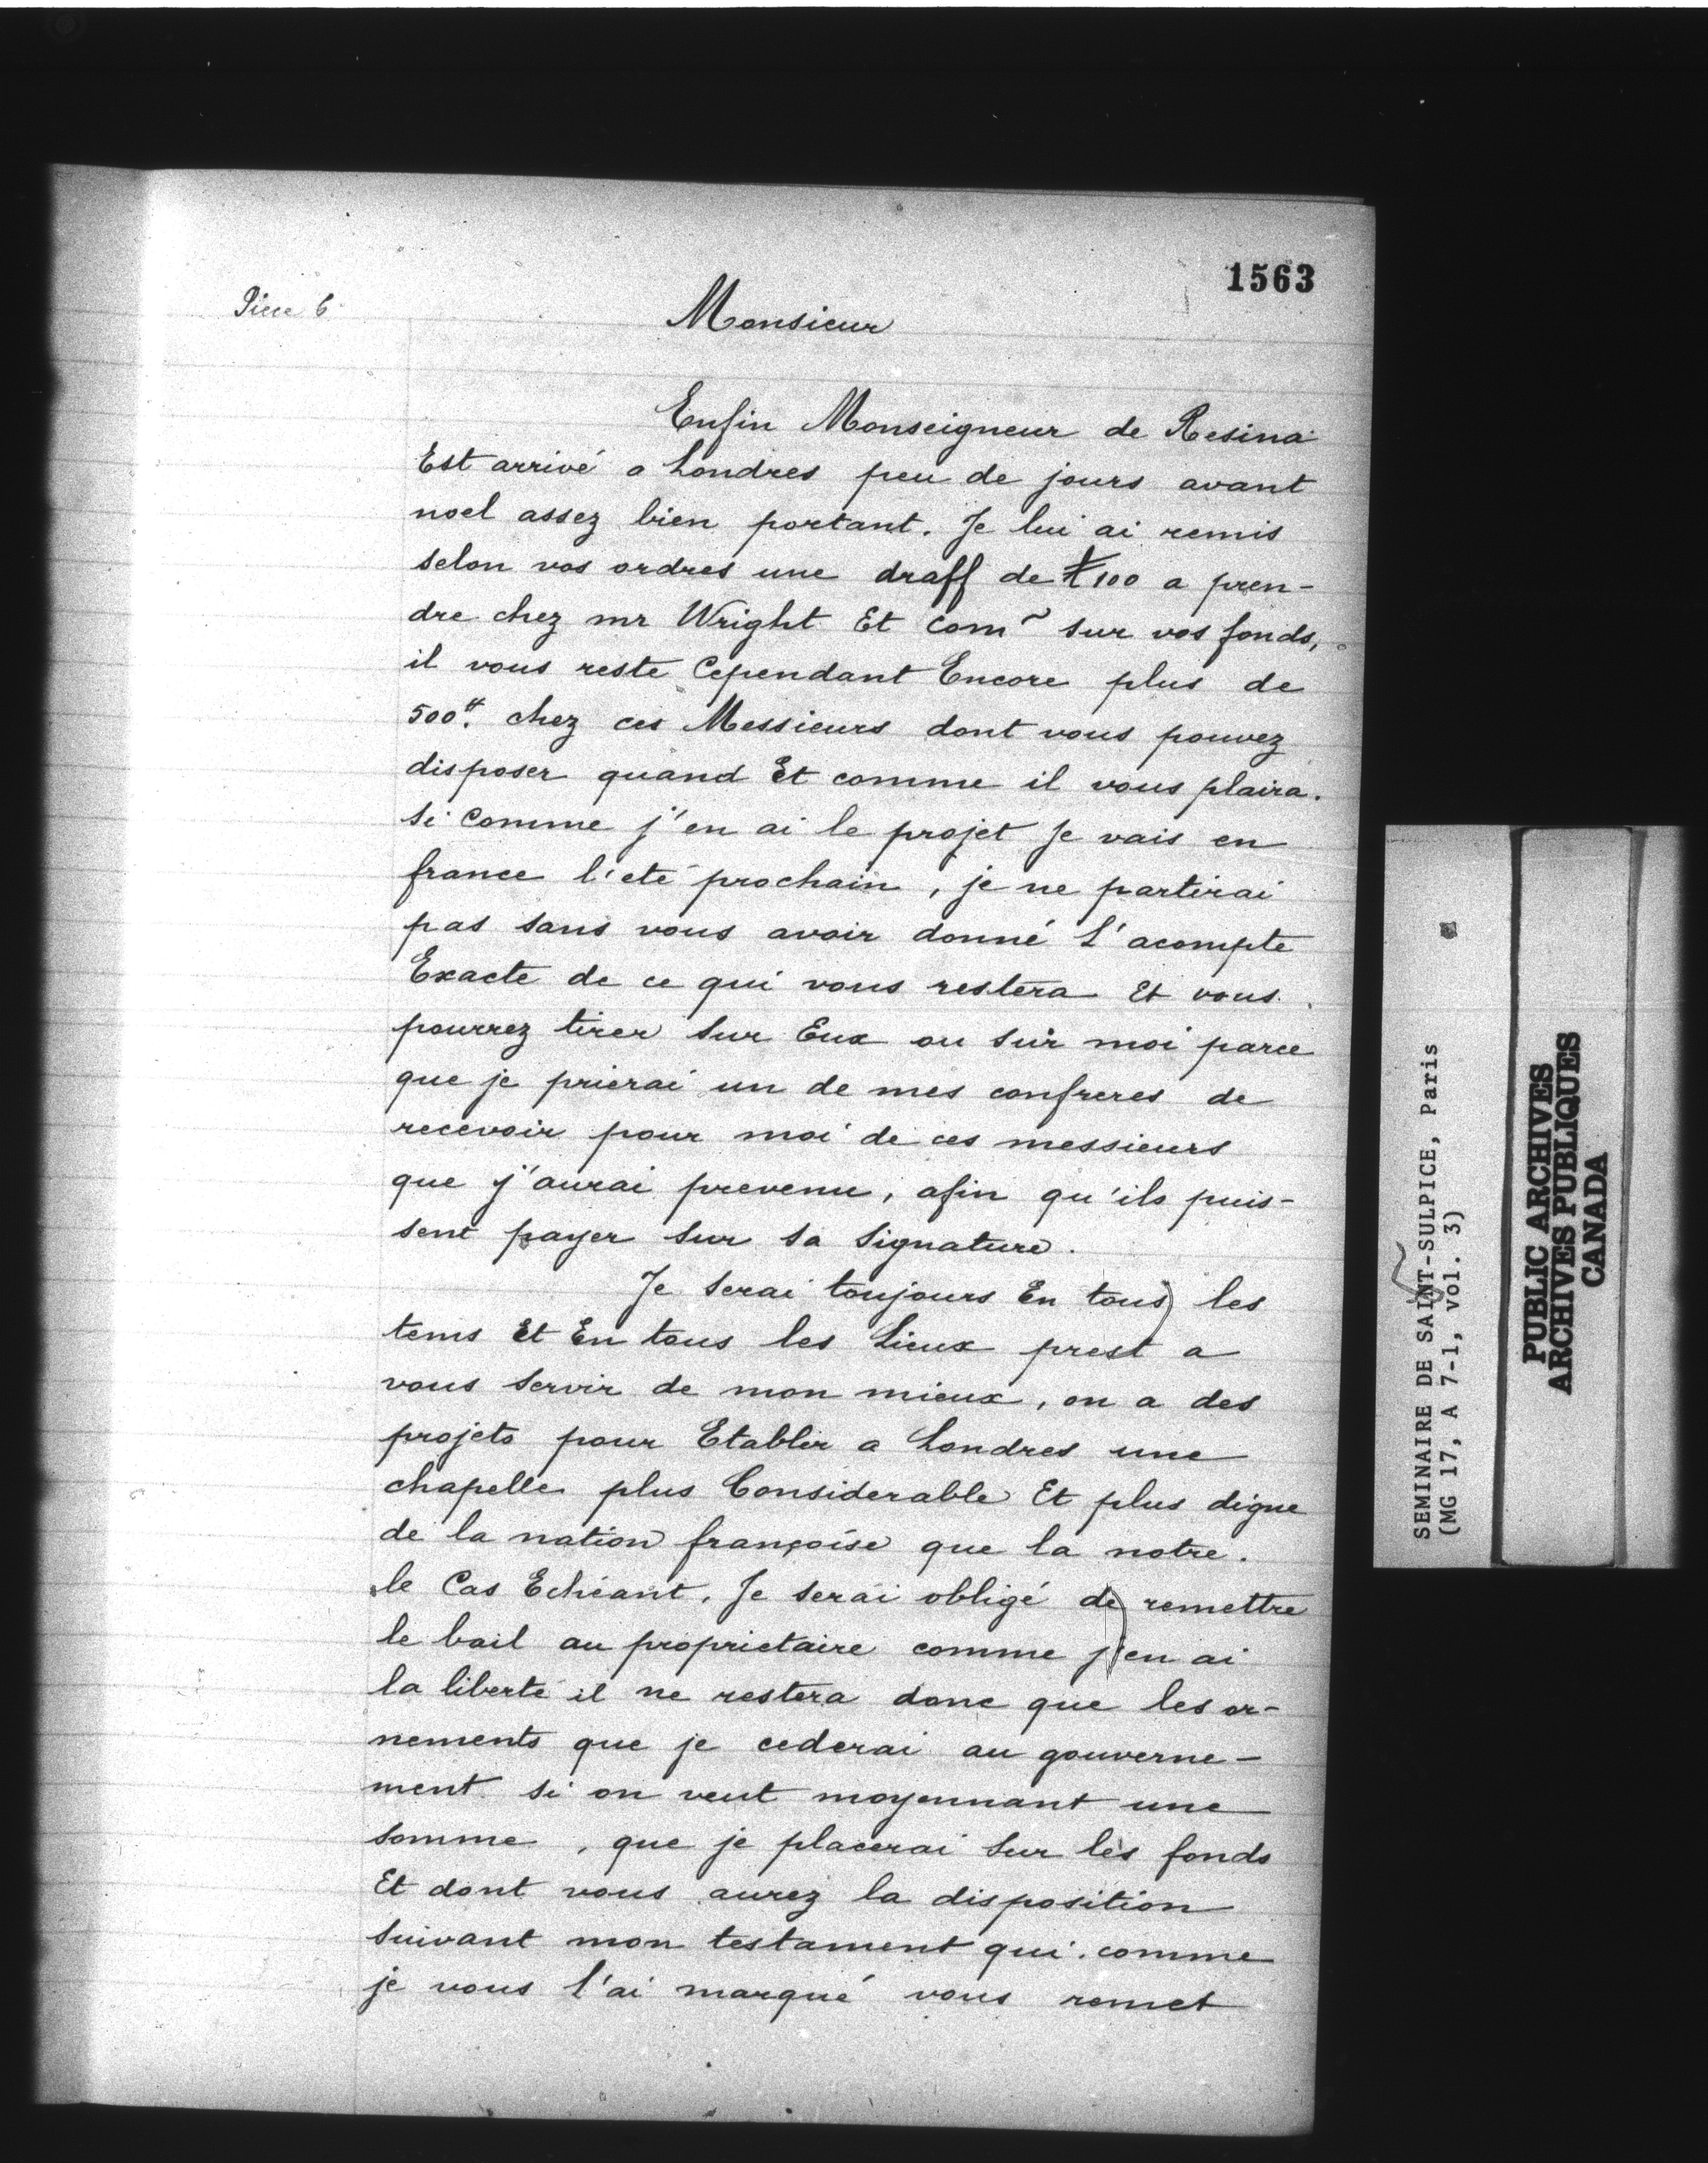 1563
Piece 6
Monsieur
Enfin Monseigneur de Resina
Est arrivé a Londres peu de jours avant
noel assez bien portant. Je lui ai remis
selon vos ordres une draff de £100 a pren-
dre chez mr Wright Et Com~ sur vos fonds,
il vous reste Cependant Encore plus de
500tt. chez ces Messieurs dont vous pouvez
disposer quand Et comme il vous plaira.
si Comme j'en ai le projet Je vais en
france l'eté prochain, je ne partirai
pas sans vous avoir donné L'acompte
Exacte de ce qui vous restera Et vous
pourrez tirer sur Eux ou sur moi parce
que je prierai un de mes confreres de
recevoir pour moi de ces messieurs
que j'aurai prevenu, afin qu'ils puis-
sent payer sur sa signature.
Je serai toujours En tous les
tems Et En tous les Lieux prest a
vous servir de mon mieux, on a des
projets pour Etablir a Londres une
chapelle plus Considerable Et plus digne
de la nation françoise que la notre.
le Cas Echéant, Je serai obligé de remettre
le bail au proprietaire comme j'en ai
la liberté il ne restera donc que les or-
nements que je cederai au gouverne-
ment si on veut moyennant une
somme, que je placerai sur les fonds
Et dont vous aurez la disposition
suivant mon testament qui comme
je vous l'ai marqué vous remet
SEMINAIRE DE SAINT-SULPICE, Paris
(MG 17, A 7-1, vol. 3)
PUBLIC ARCHIVES
ARCHIVES PUBLIQUES
CANADA